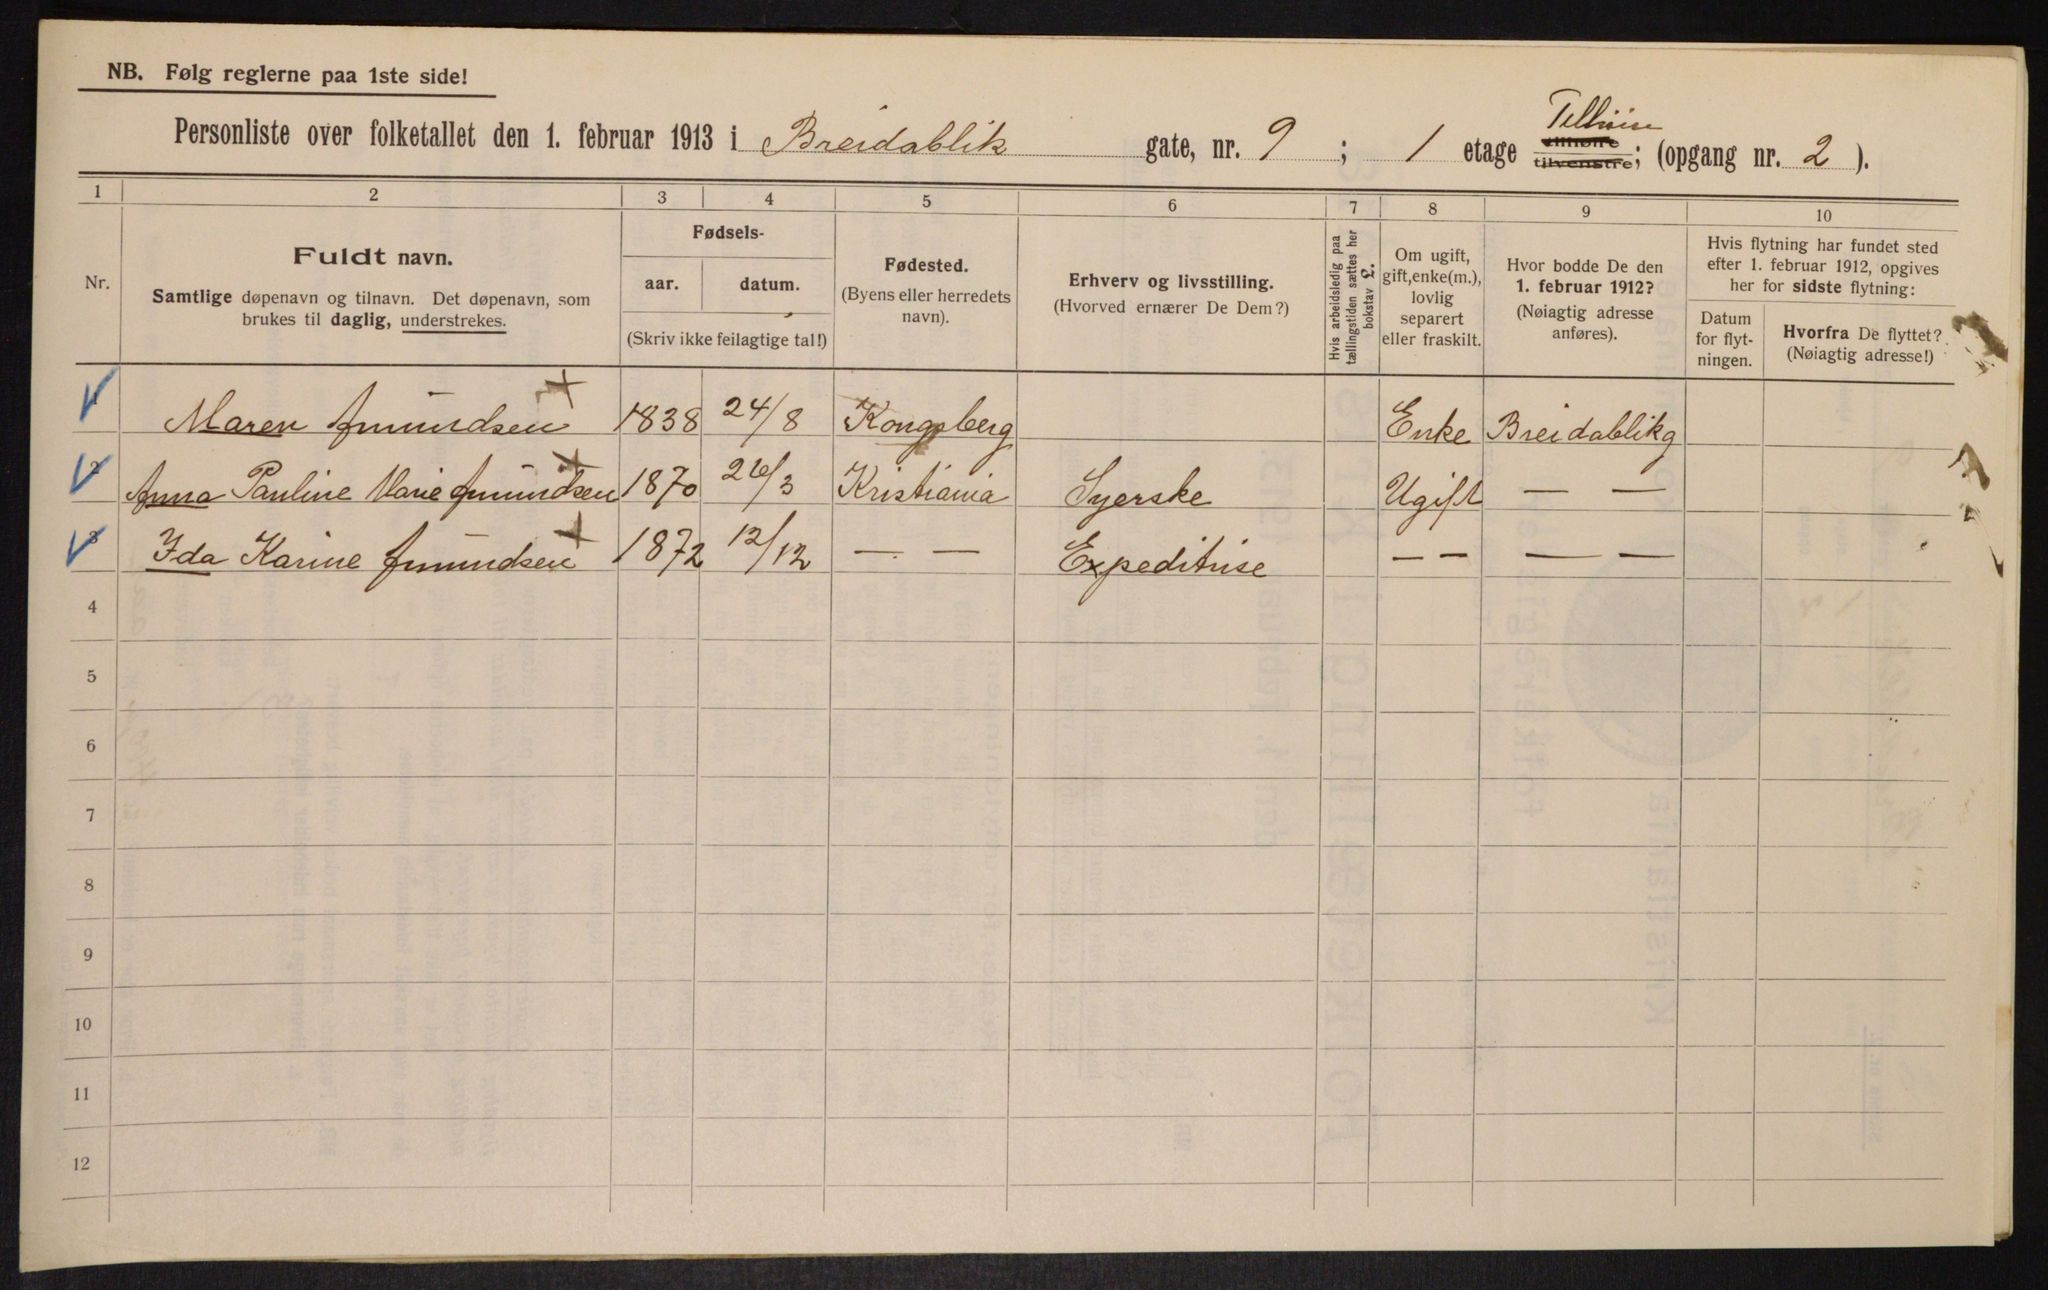 NB. Følg reglerne paa 1ste side!
Personliste over folketallet den 1. februar 1913 i Breidablik gate, nr. 9 ; 1 etage tilhøire tilvenstre; (opgang nr. 2 ).
1 2 3 4 5 6 7 8 9 10
Nr.
Fuldt navn.
Samtlige døpenavn og tilnavn. Det døpenavn, som
brukes til daglig, understrekes.
Fødsels-
aar. datum.
(Skriv ikke feilagtige tal!)
Fødested.
(Byens eller herredets
navn).
Erhverv og livsstilling.
(Hvorved ernærer De Dem?)
Hvis arbeidsledig paa
tællingstiden sættes her
bokstav L.
Om ugift,
gift, enke(m.),
lovlig
separert
eller fraskilt.
Hvor bodde De den
1. februar 1912?
(Nøiagtig adresse
anføres).
Hvis flytning har fundet sted
efter 1. februar 1912, opgives
her for sidste flytning:
Datum
for flyt-
ningen.
Hvorfra De flyttet?
(Nøiagtig adresse!)
1 Maren Amundsen 1838 24/8 Kongsberg Enke Breidablikg
2 Anna Pauline Marie Amundsen 1870 26/3 Kristiania Syerske Ugift — —
3 Ida Karine Amundsen 1872 12/12 — — Expeditrise — — — —
4
5
6
7
8
9
10
11
12